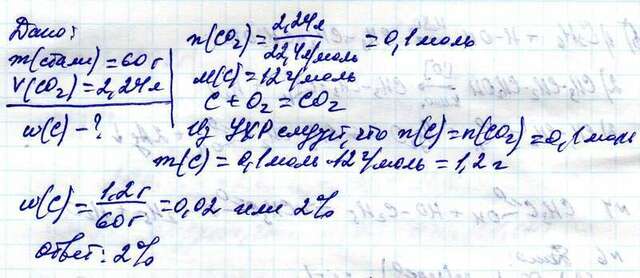 Дано:
m(стали) = 60 г
V(CO₂) = 2,24 л
w(C) - ?
n(CO₂) = 2,24 л / 22,4 л/моль = 0,1 моль
M(C) = 12 г/моль
C + O₂ = CO₂
Из УХР следует, что n(C) = n(CO₂) = 0,1 моль
m(C) = 0,1 моль · 12 г/моль = 1,2 г
w(C) = 1,2 г / 60 г = 0,02 или 2%
Ответ: 2%